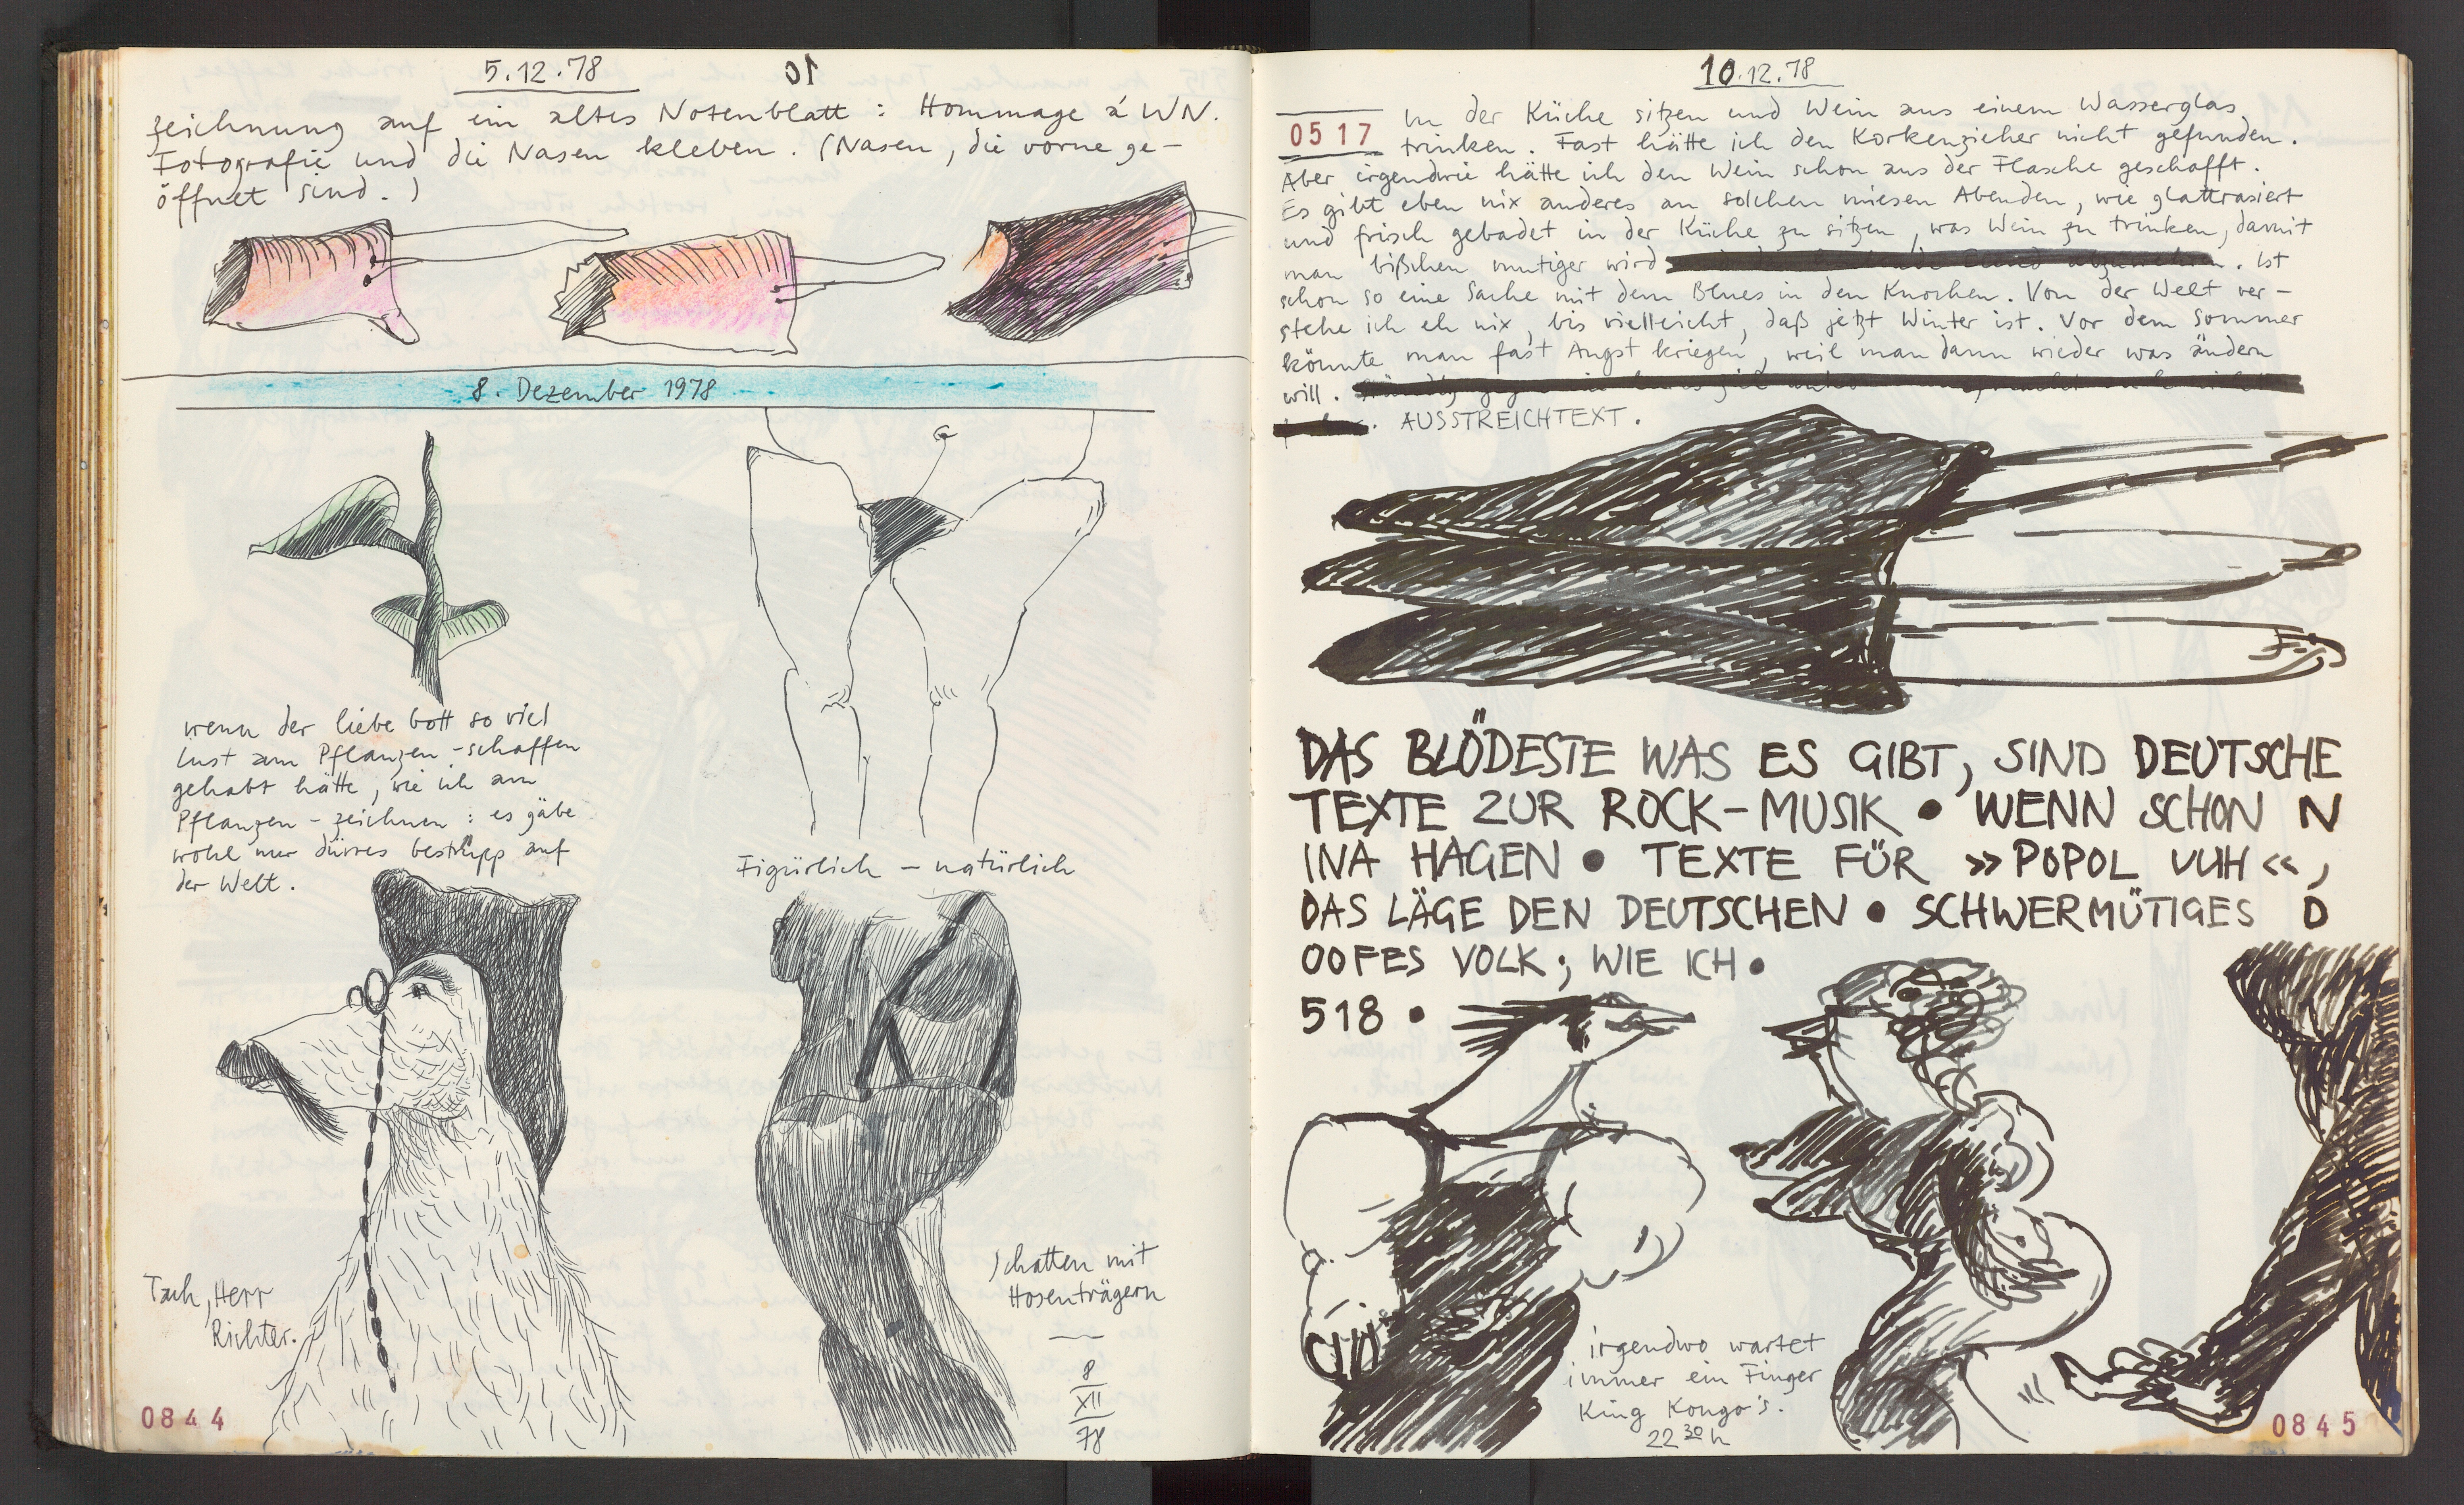 5.12.78
zeichnung auf ein altes Notenblatt : Hommage á WN.
Fotografie und die Nasen kleben. (Nasen, die vorne ge-
öffnet sind.)
8. Dezember 1978
wenn der liebe Gott so viel
lust am Pflanzen-schaffen
gehabt hätte, wie ich am
Pflanzen-zeichnen : es gäbe
wohl nur dürres bestrüpp auf
der Welt.
Figürlich – natürlich
Tach, Herr
Richter.
Schatten mit
Hosenträgern
8
XII
78
0844
10.12.78
0517
In der Küche sitzen und Wein aus einem Wasserglas
trinken. Fast hätte ich den Korkenzieher nicht gefunden.
Aber irgendwie hätte ich den Wein schon aus der Flasche geschafft.
Es gibt eben nix anderes an solchen miesen Abenden, wie glattrasiert
und frisch gebadet in der Küche zu sitzen, was Wein zu trinken, damit
man bißchen mutiger wird . Ist
schon so eine Sache mit dem Blues in den Knochen. Von der Welt ver-
stehe ich eh nix, bis vielleicht, daß jetzt Winter ist. Vor dem Sommer
könnte man fast Angst kriegen, weil man dann wieder was ändern
will.
. AUSSTREICHTEXT.
DAS BLÖDESTE WAS ES GIBT, SIND DEUTSCHE
TEXTE ZUR ROCK-MUSIK • WENN SCHON N
INA HAGEN • TEXTE FÜR »POPOL VUH«,
DAS LÄGE DEN DEUTSCHEN • SCHWERMÜTIGES D
OOFES VOLK; WIE ICH •
518 •
irgendwo wartet
immer ein Finger
King Kongo's.
22 30 h
0845